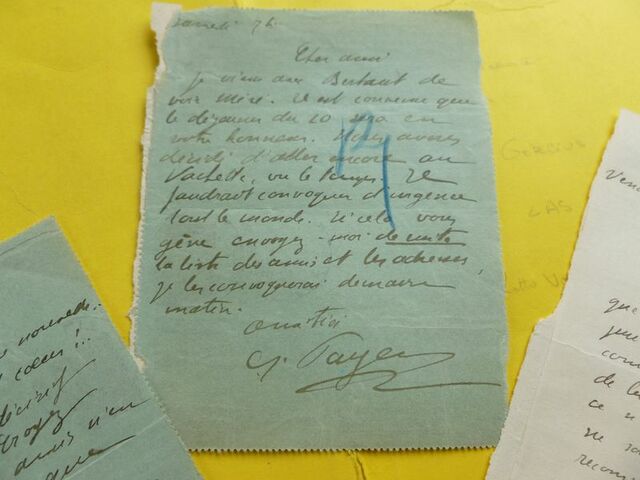 samedi 7h.
Cher ami
Je viens avec Bertaut de
voir Miré. Il est convenu que
le déjeuner du 10 sera en
votre honneur. Nous avons
décidé d'aller encore au
Vachette, vu le temps. Il
faudrait convoquer d'urgence
tout le monde. Si cela vous
gêne envoyez-moi de suite
la liste des amis et les adresses,
je les convoquerai demain
matin.
amitiés
Payen
LAS
nouvelle..
cœur !..
croyez
amis n'en
que
Ven
que
com
de la
ce n
ne so
recom